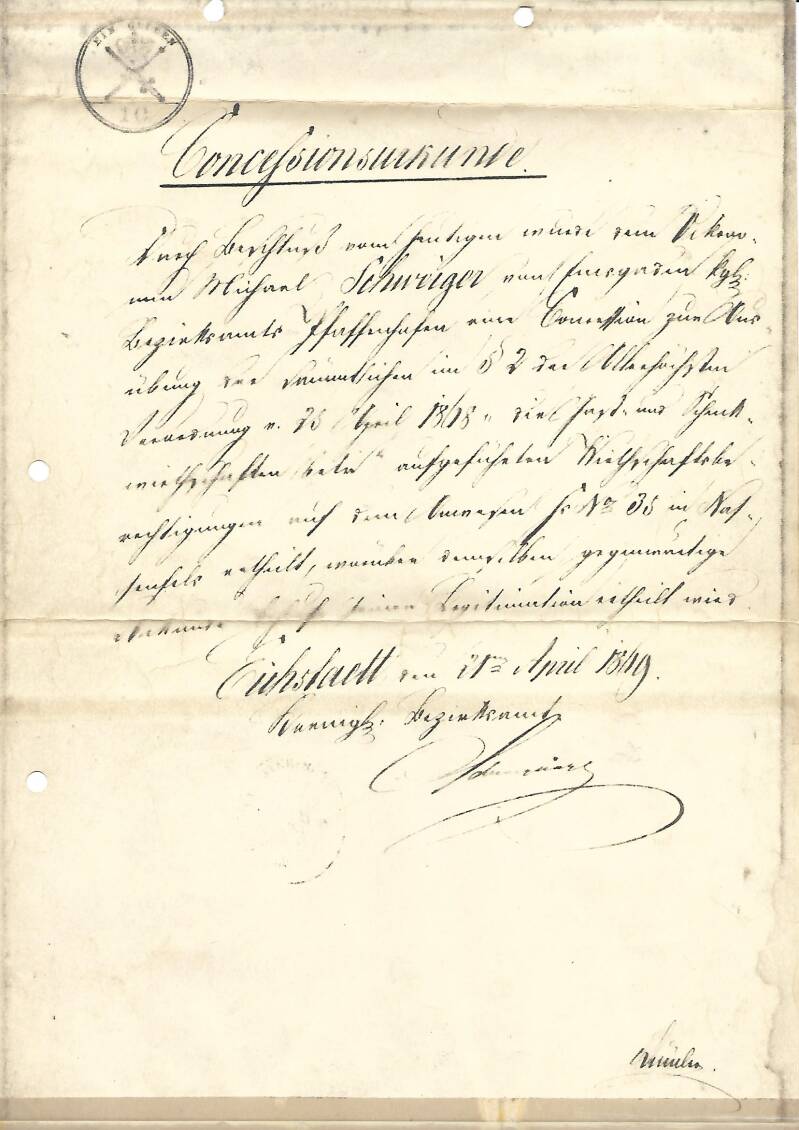 EIN GULDEN
10
Concessionsurkunde.
Durch Beschluß vom Heutigen wurde dem Oekono-
men Michael Schweiger von Ernsgaden kgl:
Bezirksamts Pfaffenhofen eine Concession zur Aus-
übung der sämmtlichen im § 2 der Allerhöchsten
Verordnung v. 25 April 1868 „die Gast- und Schenk-
wirthschaften betr" aufgeführten Wirthschaftsbe-
rechtigungen auf dem Anwesen Hs No 35 in Nas-
senfels ertheilt, worüber demselben gegenwärtige
Urkunde seiner Legitimation ertheilt wird.
Eichstaett den 21ten April 1869.
Koenigl: Bezirksamt